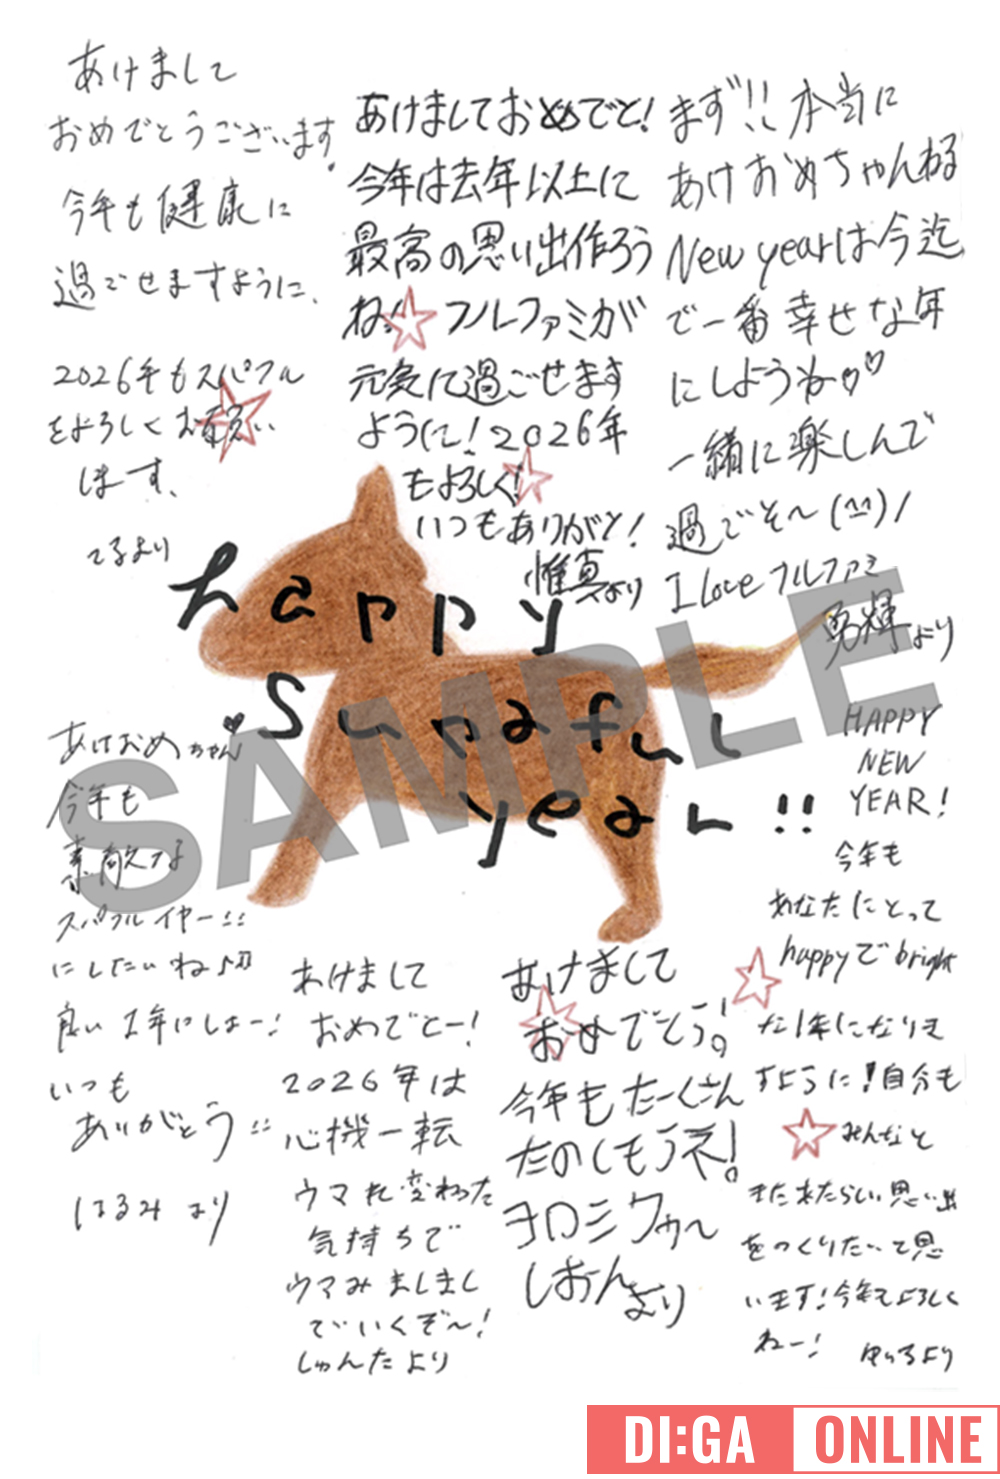 あけまして
おめでとうございます。
今年も健康に
過ごせますように、
2026年もスパフル
をよろしくお願い
します、
てるより
あけましておめでと!
今年は去年以上に
最高の思い出作ろう
ね!☆フルファミが
元気に過ごせます
ように!2026年
もよろしく!☆
いつもありがと!
惟真より
まず!!本当に
あけおめちゃんねる
New yearは今迄
で一番幸せな年
にしようね♡♡
一緒に楽しんで
過ごそ〜(^^)/
I Love フルファミ
勇輝より
happy
Supaful
year!!
あけおめちゃん♥
今年も
素敵な
スパフルイヤー!!
にしたいね♪♫
良い1年にしよー!
いつも
ありがとう!!
はるみより
あけまして
おめでとー!
2026年は
心機一転
ウマれ変わった
気持ちで
ウマみましまし
でいくぞ〜!
しゅんたより
あけまして
おめでとう!
今年もたーくさん
たのしもうネ!
ヨロシクゥ〜
しおんより
HAPPY
NEW
YEAR!
今年も
あなたにとって
happyでbright
な1年になりま
すように!自分も
☆みんなと
またあたらしい思い出
をつくりたいて思
います!今年もよろしく
ねー!
ゆいるより
SAMPLE
DI:GA ONLINE